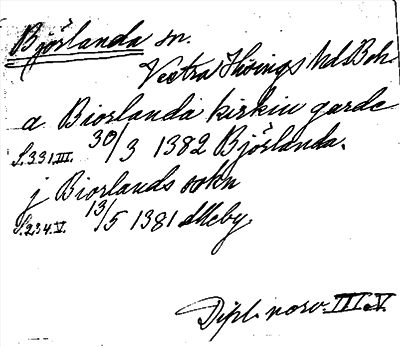 Björlanda sn.
Vestra Hisings Hd. Boh.
a Biorlanda kirkiu garde
S.331.III. 30/3 1382 Björlanda.
j Biorlands sokn
S.234.V. 13/5 1381 Skeby
Dipl. norv. III. V.